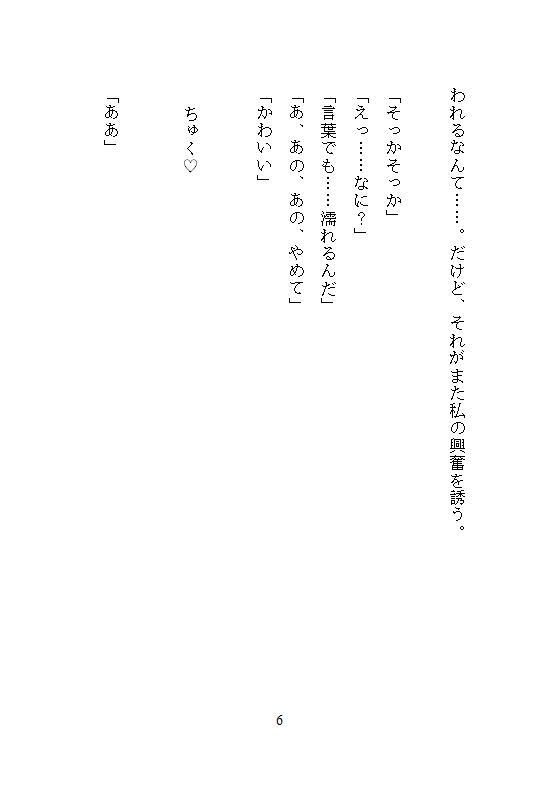 われるなんて……。だけど、それがまた私の興奮を誘う。
「そっかそっか」
「えっ……なに？」
「言葉でも……濡れるんだ」
「あ、あの、あの、やめて」
「かわいい」
ちゅく♡
「ああ」
6